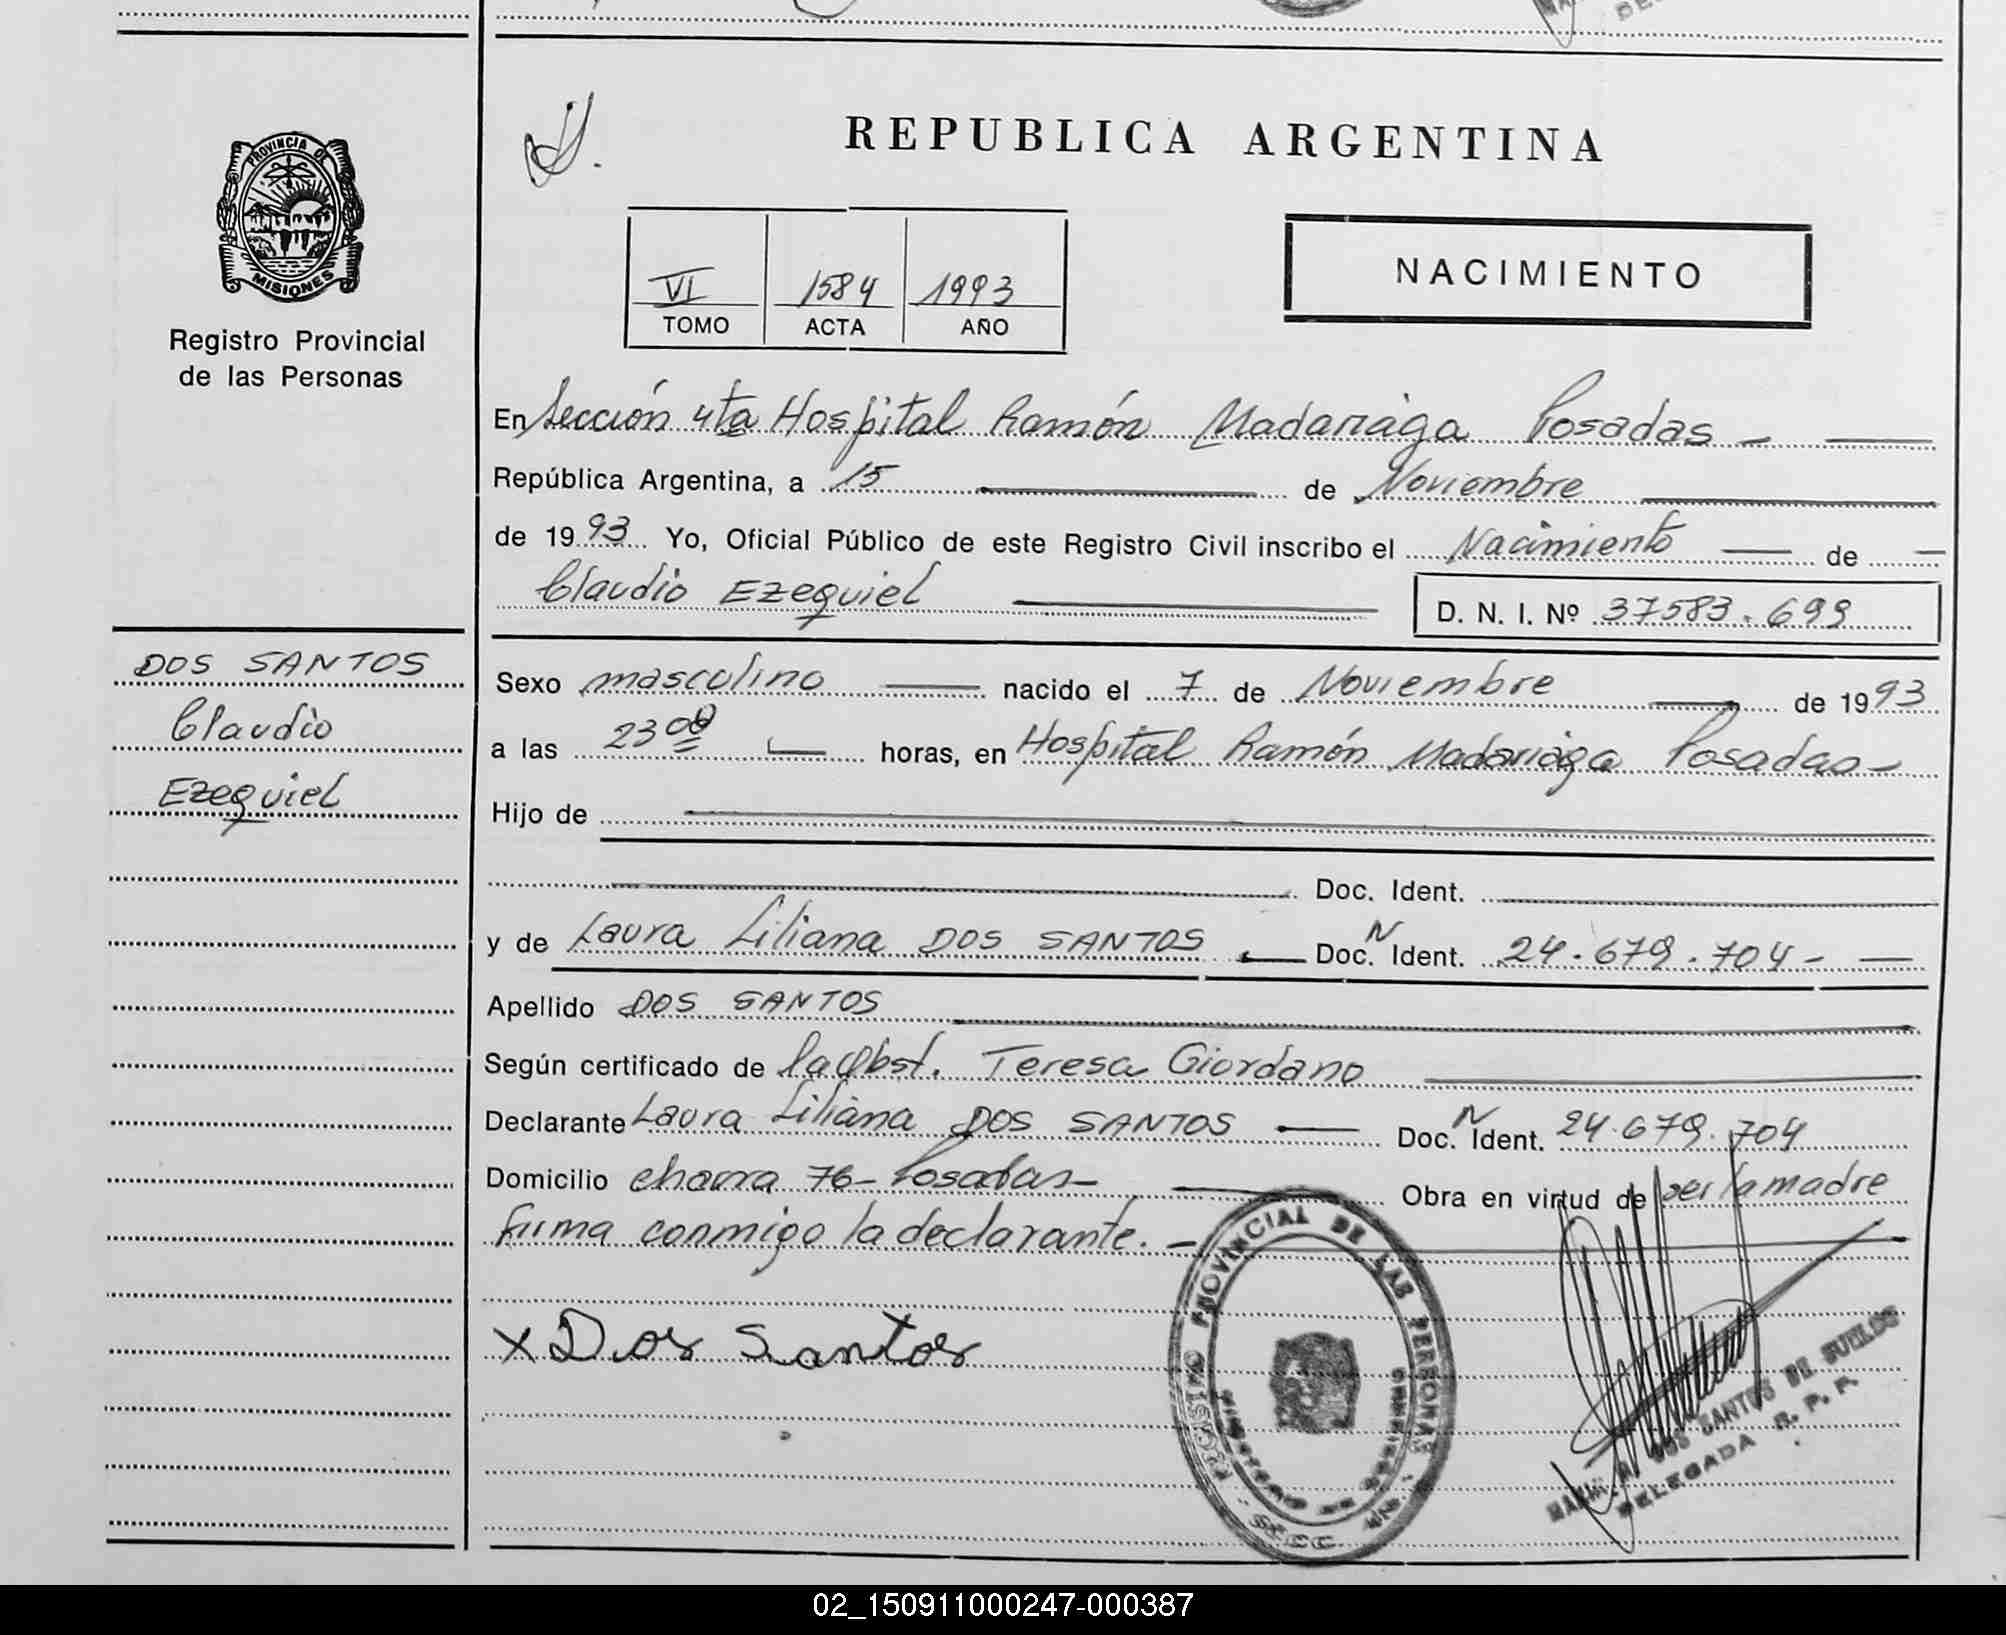 PROVINCIA DE
MISIONES
Registro Provincial
de las Personas
REPUBLICA ARGENTINA
VI 1584 1993
TOMO ACTA AÑO
NACIMIENTO
En Sección 4ta Hospital Ramón Madariaga Posadas -
República Argentina, a 15 de Noviembre
de 1993 Yo, Oficial Público de este Registro Civil inscribo el Nacimiento de
Claudio Ezequiel D. N. I. Nº 37583.699
DOS SANTOS
Claudio
Ezequiel
Sexo mascolino nacido el 7 de Noviembre de 1993
a las 23 00 horas, en Hospital Ramón Madariaga Posadas -
Hijo de
Doc. Ident.
y de Laura Liliana DOS SANTOS Doc. N Ident. 24.679.704 -
Apellido DOS SANTOS
Según certificado de la Obst. Teresa Giordano
Declarante Laura Liliana DOS SANTOS Doc. N Ident. 24.679.704
Domicilio chacra 76 - Posadas - Obra en virtud de ser la madre
firma conmigo la declarante. -
x Dos Santos
REGISTRO PROVINCIAL DE LAS PERSONAS
DOS SANTOS DE SUELDO
DELEGADA R. P. P.
02_150911000247-000387